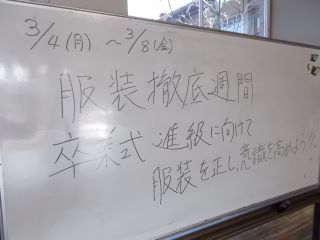 3/4(月) ～3/8(金)
服装徹底週間
卒業式 進級に向けて
服装を正し、意識を高めよう!!